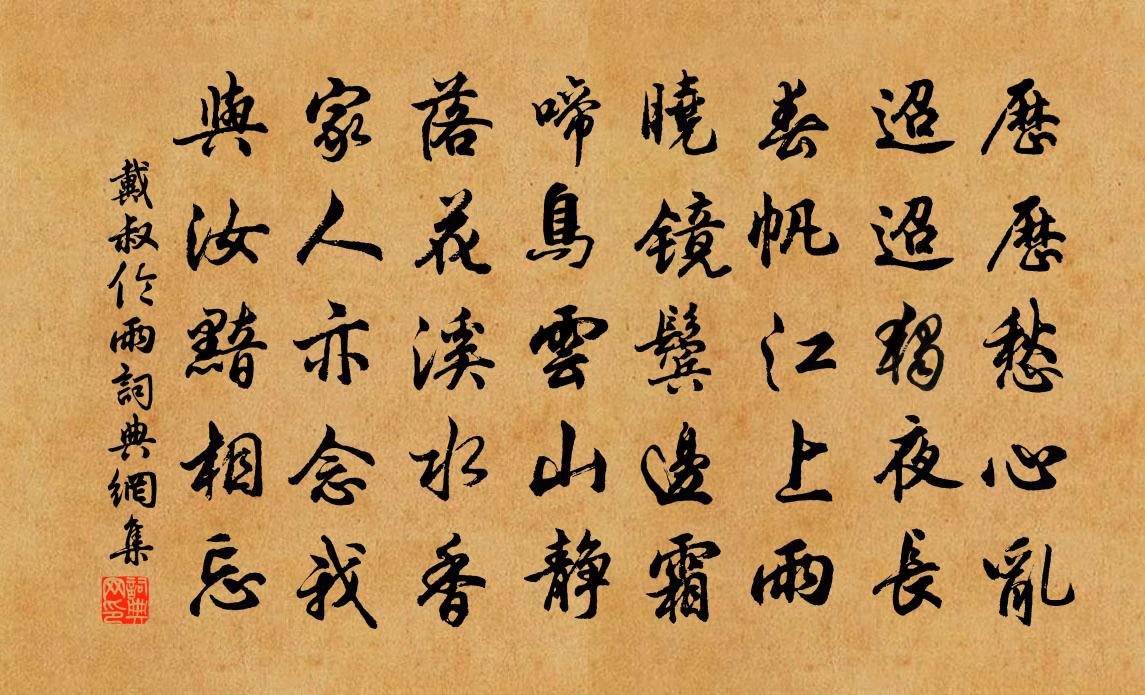 歷歷愁心亂
迢迢獨夜長
春帆江上雨
曉鏡鬢邊霜
啼鳥雲山静
落花溪水香
家人亦念我
與汝黯相忘
戴叔伦雨詞典網集
詞典网印